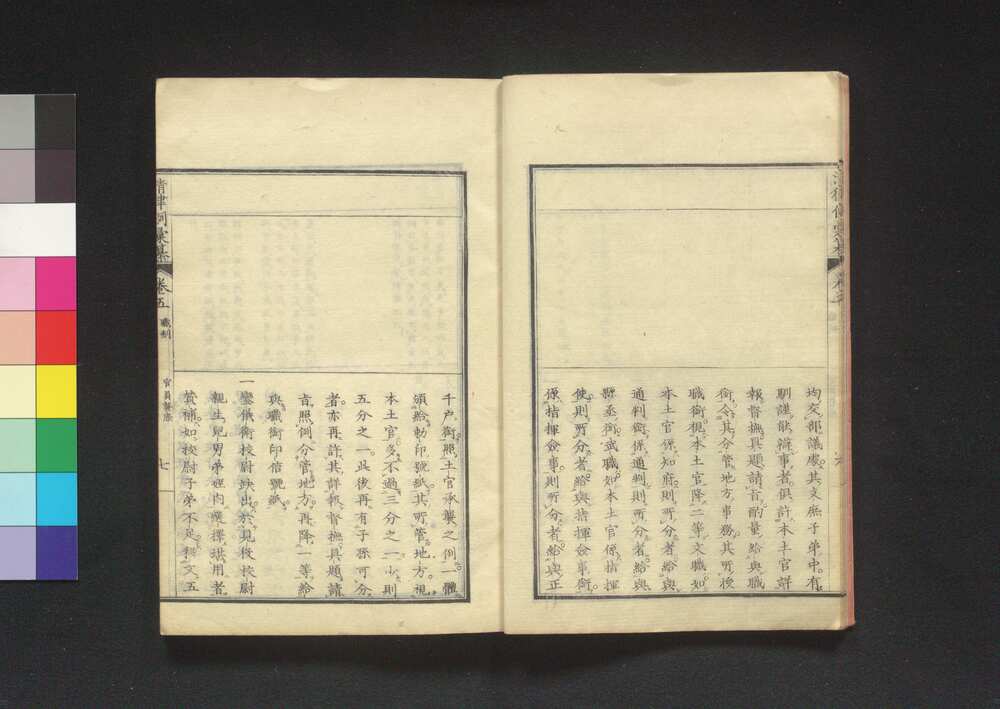 均交部議處其文庶子弟中有
馴謹能辦事者俱許本土官詳
報督撫具題請旨酌量給與職
銜令其分管地方事務其所授
職銜視本土官降二等文職如
本土官係知府則所分者給與
通判銜係通判則所分者給與
縣丞銜武職如本土官係指揮
使則所分者給與指揮僉事銜
係指揮僉事則所分者給與正
千戶銜照土官承襲之例一體
頒給勅印號紙其所管地方視
本土官多不過三分之一少則
五分之一此後再有子孫可分
者亦再許其詳報督撫具題請
旨照例分管地方再降一等給
與職銜印信號紙
一鑾儀衛校尉缺出於見役校尉
親生兒男弟姪內慎擇堪用者
充補如校尉子弟不足移文五
清律例彙纂 卷五 職制 官員襲廕 七